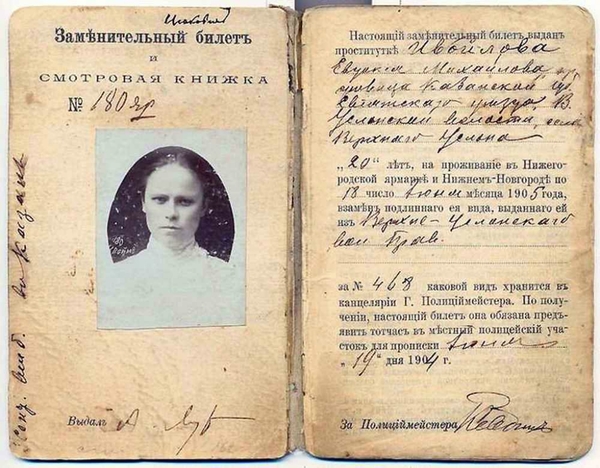 Замѣнительный билетъ
и
СМОТРОВАЯ КНИЖКА
№ 180 яр
Выдалъ
Настоящій замѣнительный билетъ выданъ
проституткѣ Ивойлова
Евдокія Михайлова
Казанской
уѣзда, В.
Услонской волости, села
Верхняго Услона
„20" лѣтъ, на проживаніе въ Нижего-
родской ярмаркѣ и Нижнемъ-Новгородѣ по
18 число Іюня мѣсяца 1905 года,
взамѣнъ подлиннаго ея вида, выданнаго ей
изъ Верхне-Услонскаго
вол Прав.
за № 468 каковой видъ хранится въ
канцеляріи Г. Полиціймейстера. По полу-
ченіи, настоящій билетъ она обязана предъ-
явить тотчасъ въ мѣстный полицейскій уча-
стокъ для прописки Іюня
„19" дня 1904 г.
За Полиціймейстера